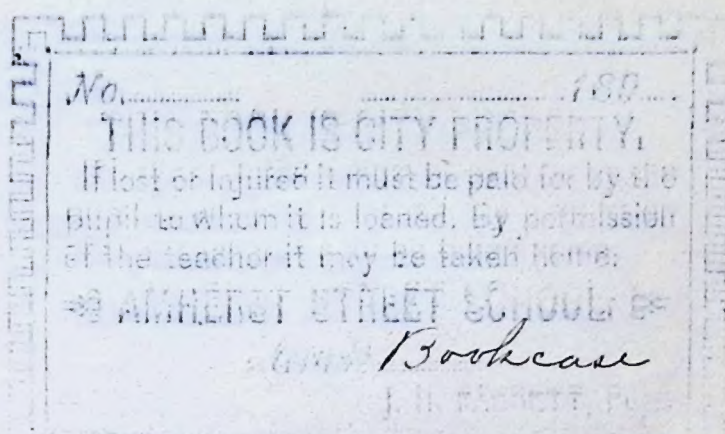 No. 189
THIS BOOK IS CITY PROPERTY.
If lost or injured it must be paid for by the
pupil to whom it is loaned. By permission
of the teacher it may be taken home.
AMHERST STREET SCHOOL
Bookcase
J. H.